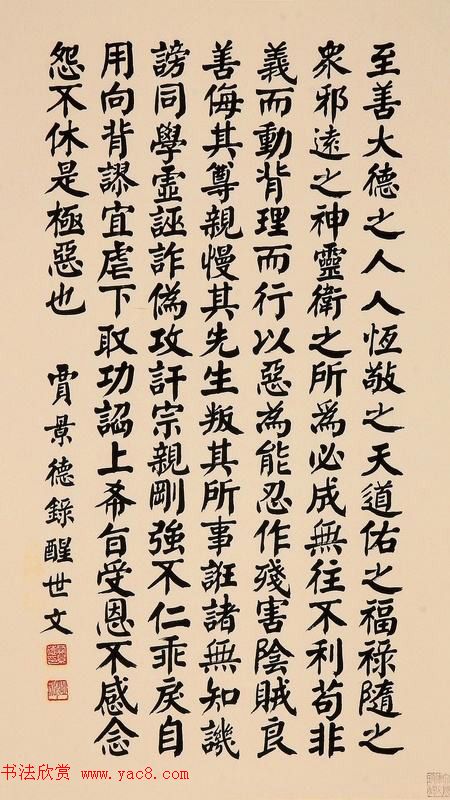 至善大德之人人恆敬之天道佑之福祿隨之
衆邪遠之神靈衛之所爲必成無往不利苟非
義而動背理而行以惡為能忍作殘害陰賊良
善侮其尊親慢其先生叛其所事誑諸無知謗
謗同學虛誣詐偽攻訐宗親剛強不仁乖戾自
用向背謬宜虐下取功諂上希旨受恩不感念
怨不休是極惡也
賈景德錄醒世文
书法欣赏 www.yac8.com